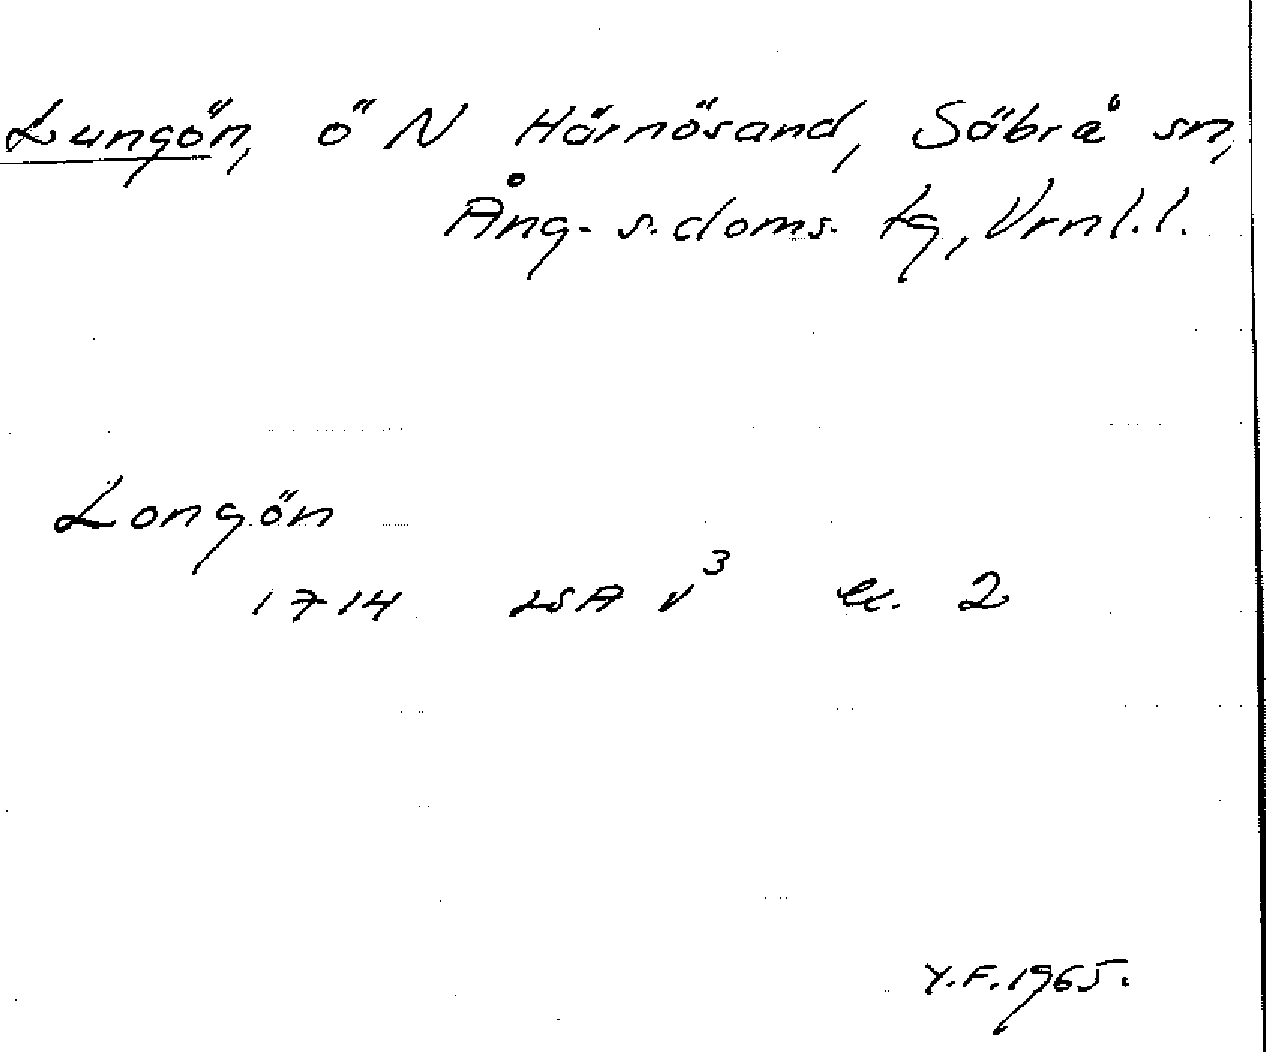 Lungön, ö N Härnösand, Säbrå sn,
Ång. s. doms. tg, Vrnl. l.
Longön
1714 LSA v³ 2
Y.F. 1965.